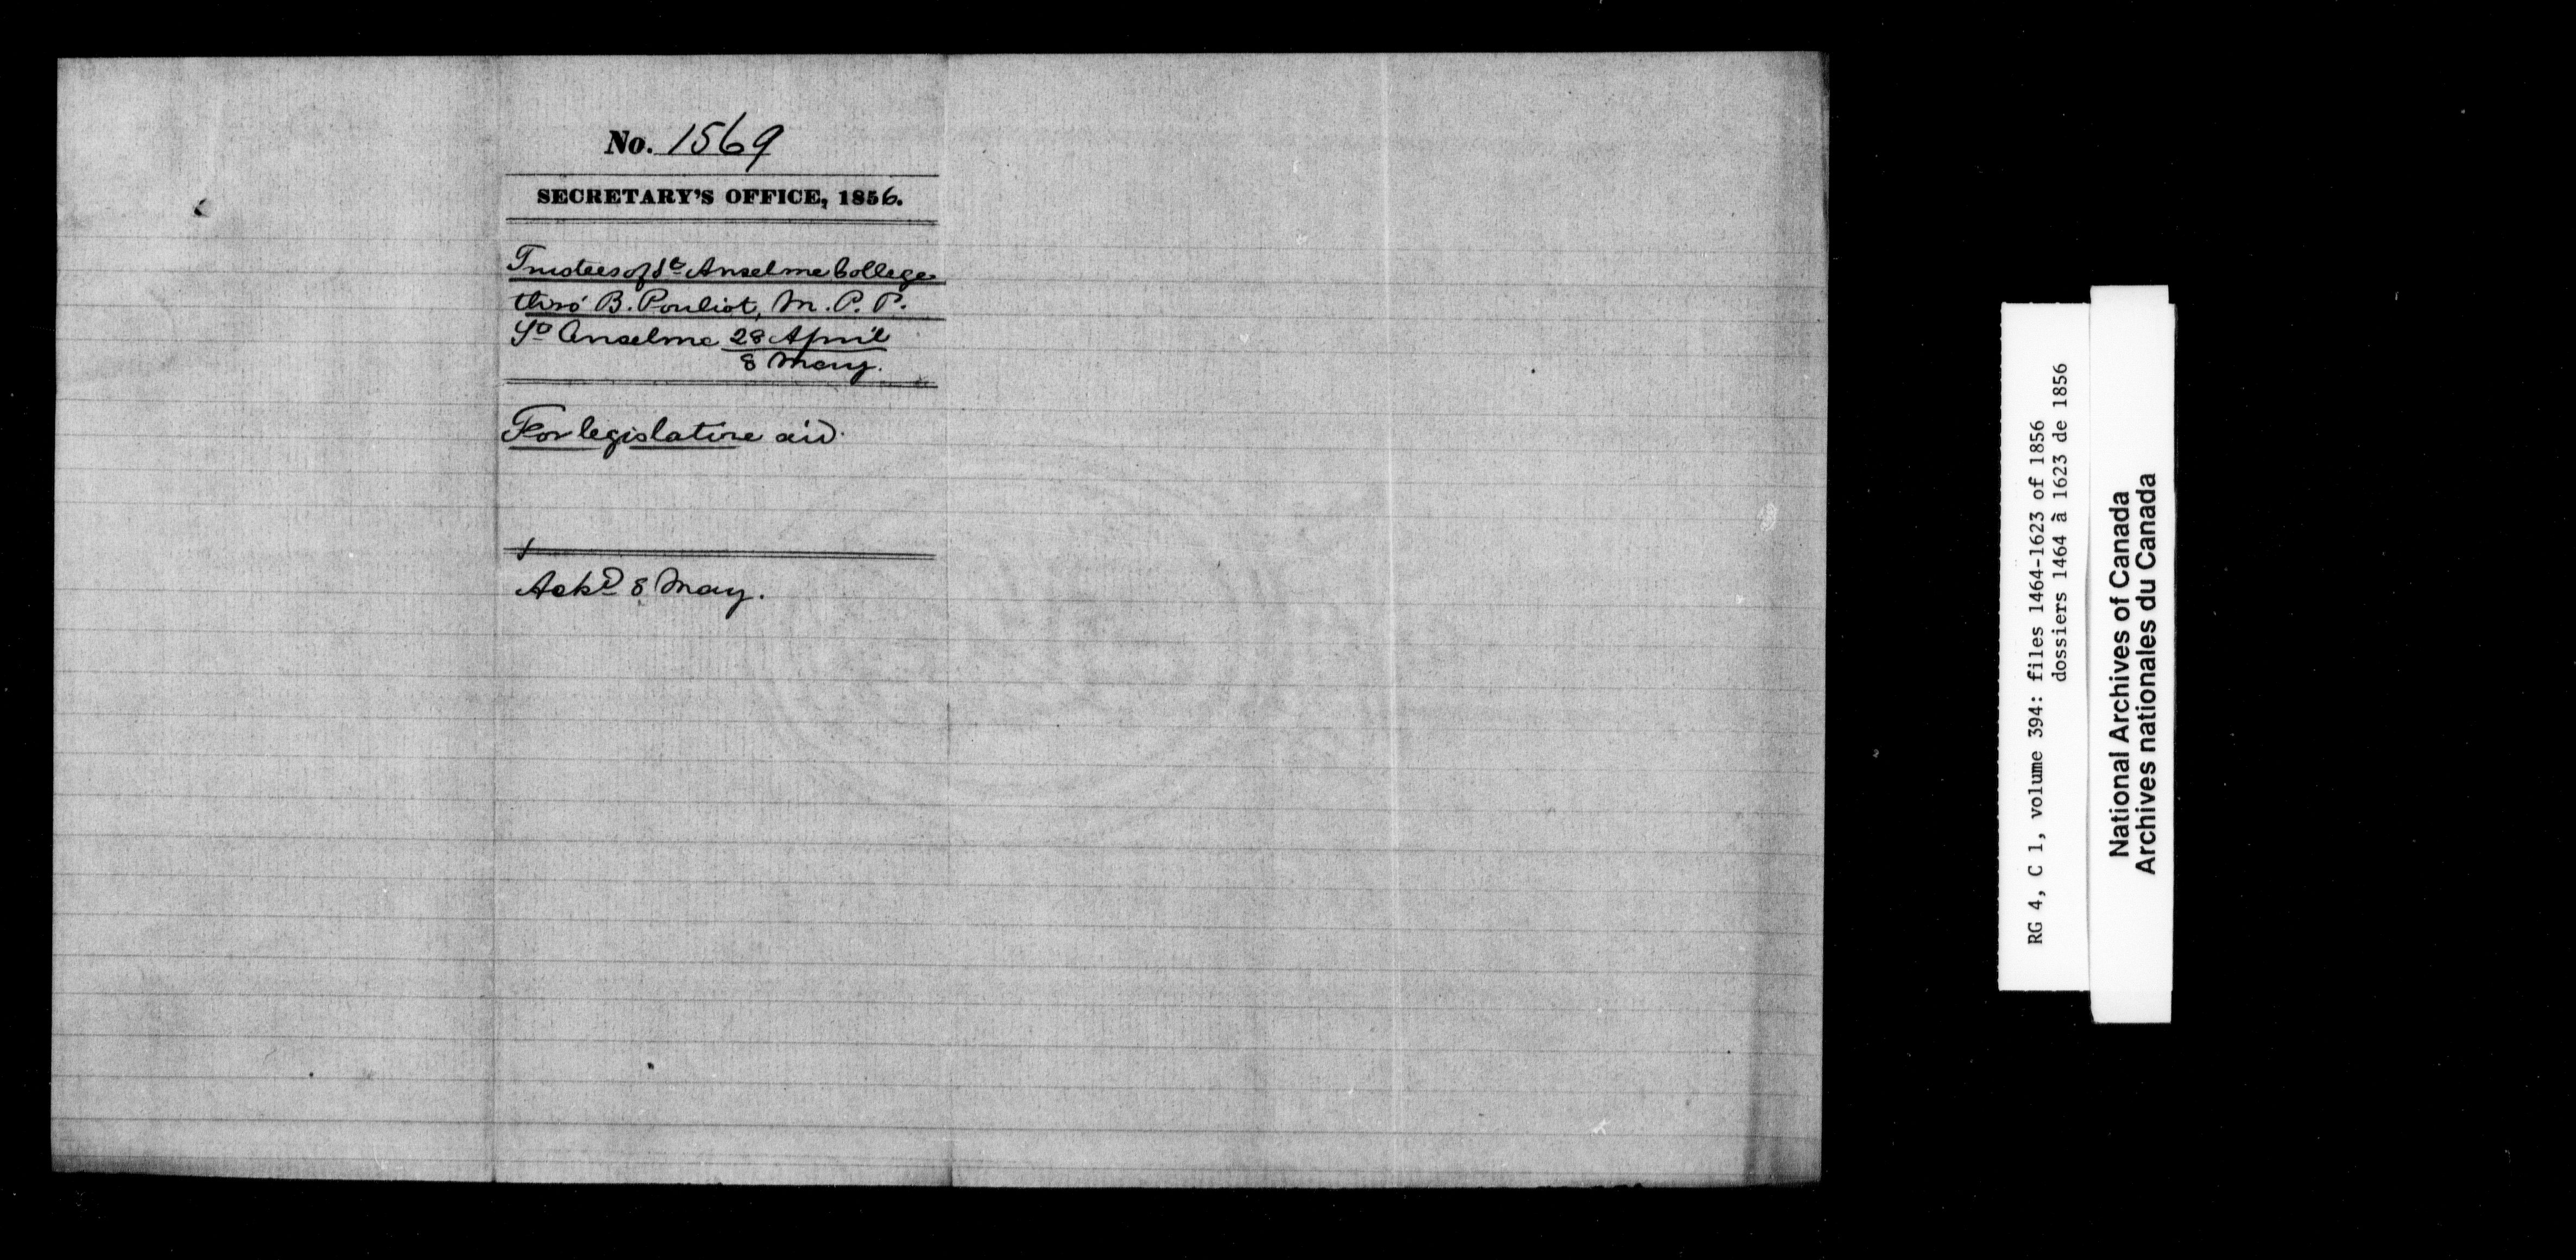 No. 1569
SECRETARY'S OFFICE, 1856.
Trustees of St Anselme College
thro' B. Pouliot, M. P. P.
St Anselme 28 April
8 May.
For legislative aid.
Ackd 8 May.
RG 4, C 1, volume 394: files 1464-1623 of 1856
dossiers 1464 à 1623 de 1856
National Archives of Canada
Archives nationales du Canada